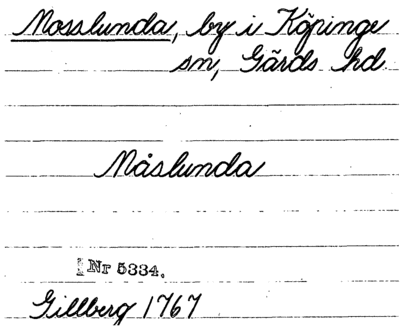 Mosslunda, by i Köpinge
sn, Gärds hd.
Måslunda
Nr 5334.
Gillberg 1767